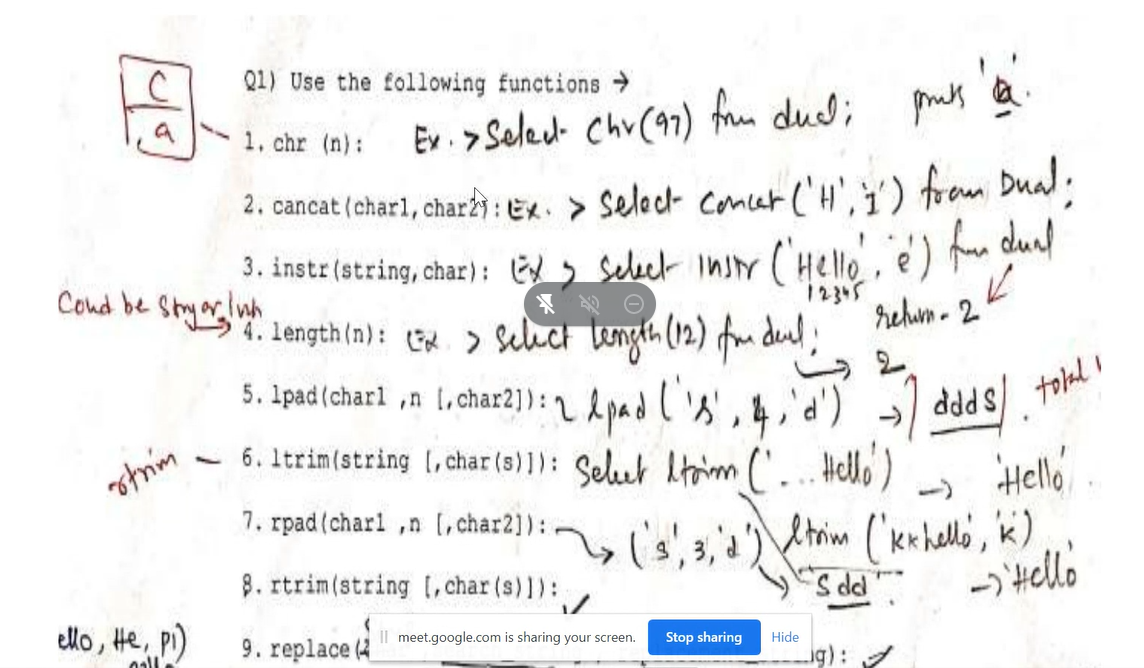 C
a
Q1) Use the following functions →
1. chr (n): Ex. > Select Chr(97) from dual; prints 'a'.
2. cancat(char1,char2): Ex. > Select Concat('H','i') from Dual;
3. instr(string,char): Ex > Select Instr ('Hello', 'e') from dual
12345
return - 2
Could be
4. length(n): Ex > Select length(12) from dual;
2
5. lpad(char1 ,n [,char2]): lpad ('s', 4, 'd') → ddds total
rtrim
6. ltrim(string [,char(s)]): Select ltrim ('...Hello') → 'Hello'
7. rpad(char1 ,n [,char2]): → ('s', 3, 'd') ltrim ('kkhello', 'k')
8. rtrim(string [,char(s)]): 'Sdd' → 'Hello'
meet.google.com is sharing your screen. Stop sharing Hide
ello, He, Pi)
9. replace( g):